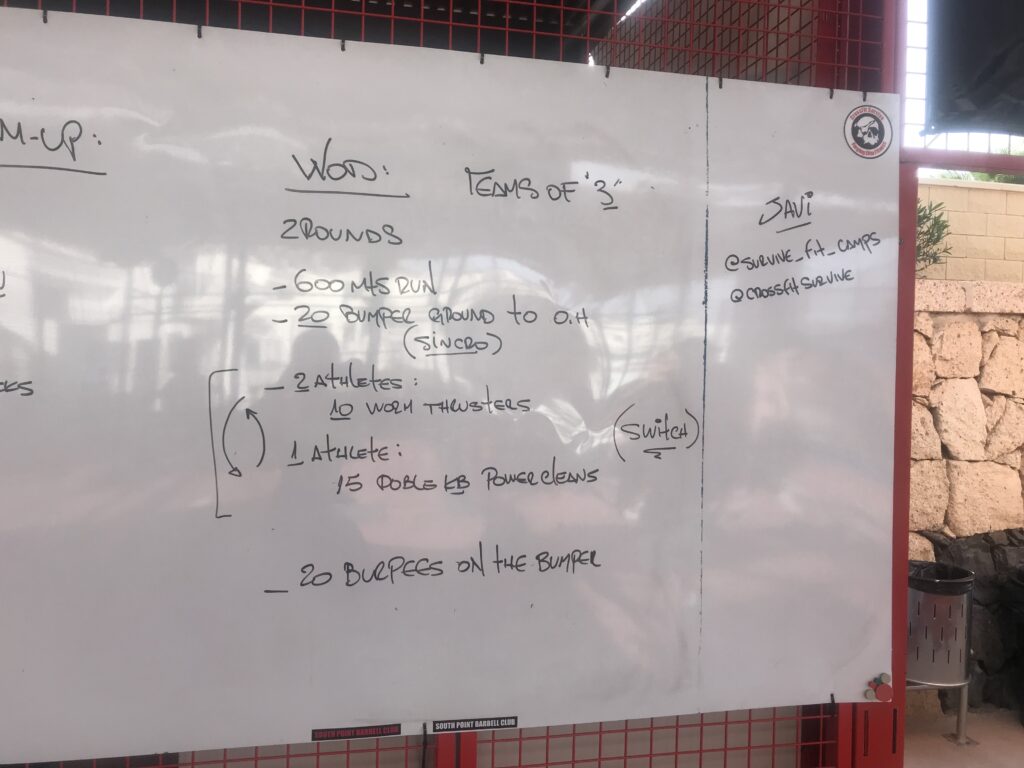 M-UP:
WOD:
TEAMS OF "3"
2 ROUNDS
- 600 Mts RUN
- 20 BUMPER GROUND to O.H
(SINCRO)
- 2 AthLETES:
10 WORM THRUSTERS
1 AThLETE:
15 DOBLE KB POWER CLEANS
(SWitCH)
- 20 BURPEES ON thE BUMPER
JAVi
@SURVIVE_Fit_CAMPS
@CROSSFit SURVIVE
SOUTH POINT BARBELL CLUB
SOUTH POINT BARBELL CLUB